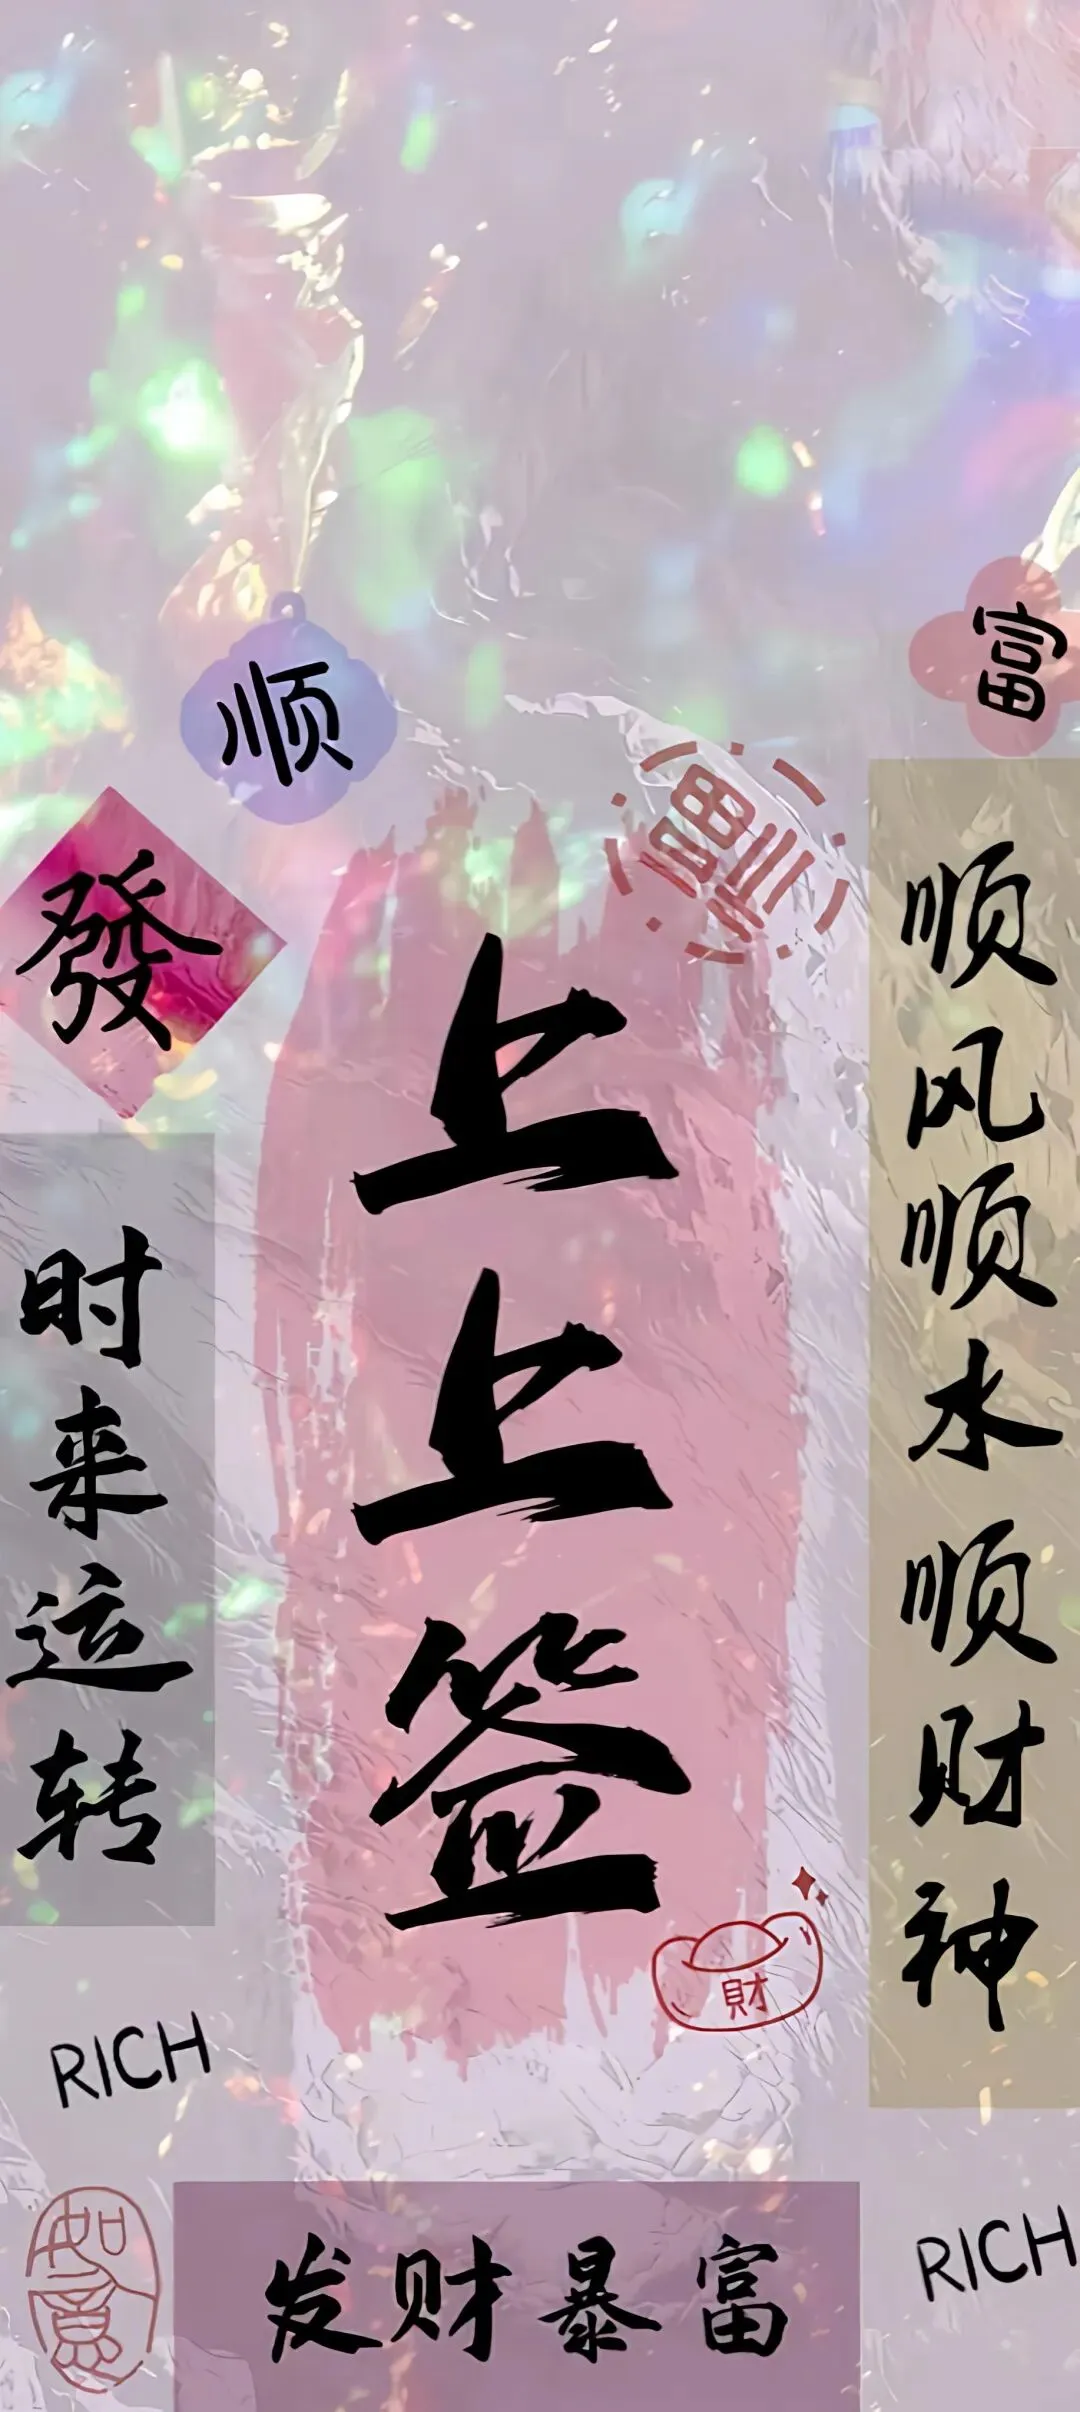 富
顺
發
上上签
顺风顺水顺财神
时来运转
財
RICH
如意
发财暴富
RICH